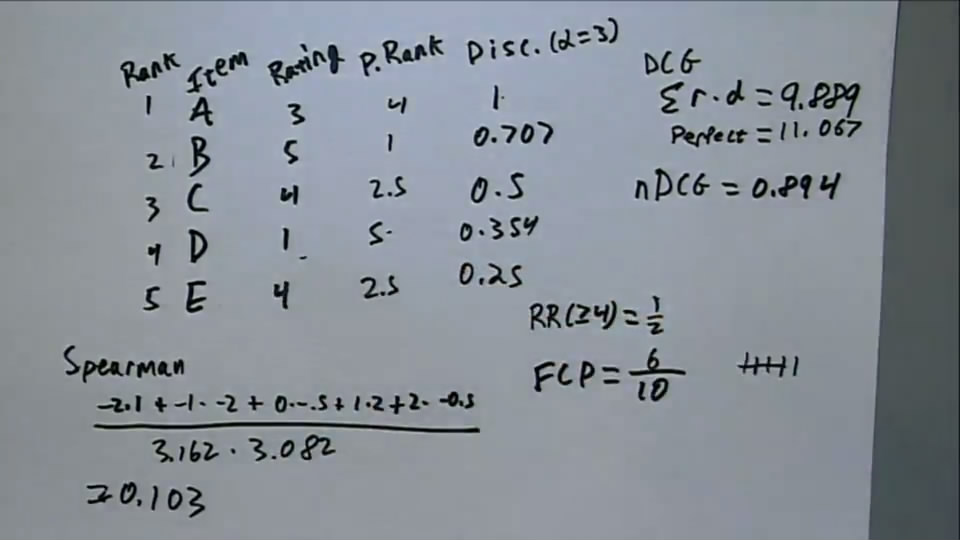 Rank Item Rating P. Rank Disc. (α=3)
1 A 3 4 1
2 B 5 1 0.707
3 C 4 2.5 0.5
4 D 1 5 0.354
5 E 4 2.5 0.25
DCG
Σ r·d = 9.889
Perfect = 11.067
nDCG = 0.894
RR(≥4) = 1/2
FCP = 6/10
Spearman
-2·1 + -1·-2 + 0·-.5 + 1·2 + 2·-0.5
3.162 · 3.082
= 0.103